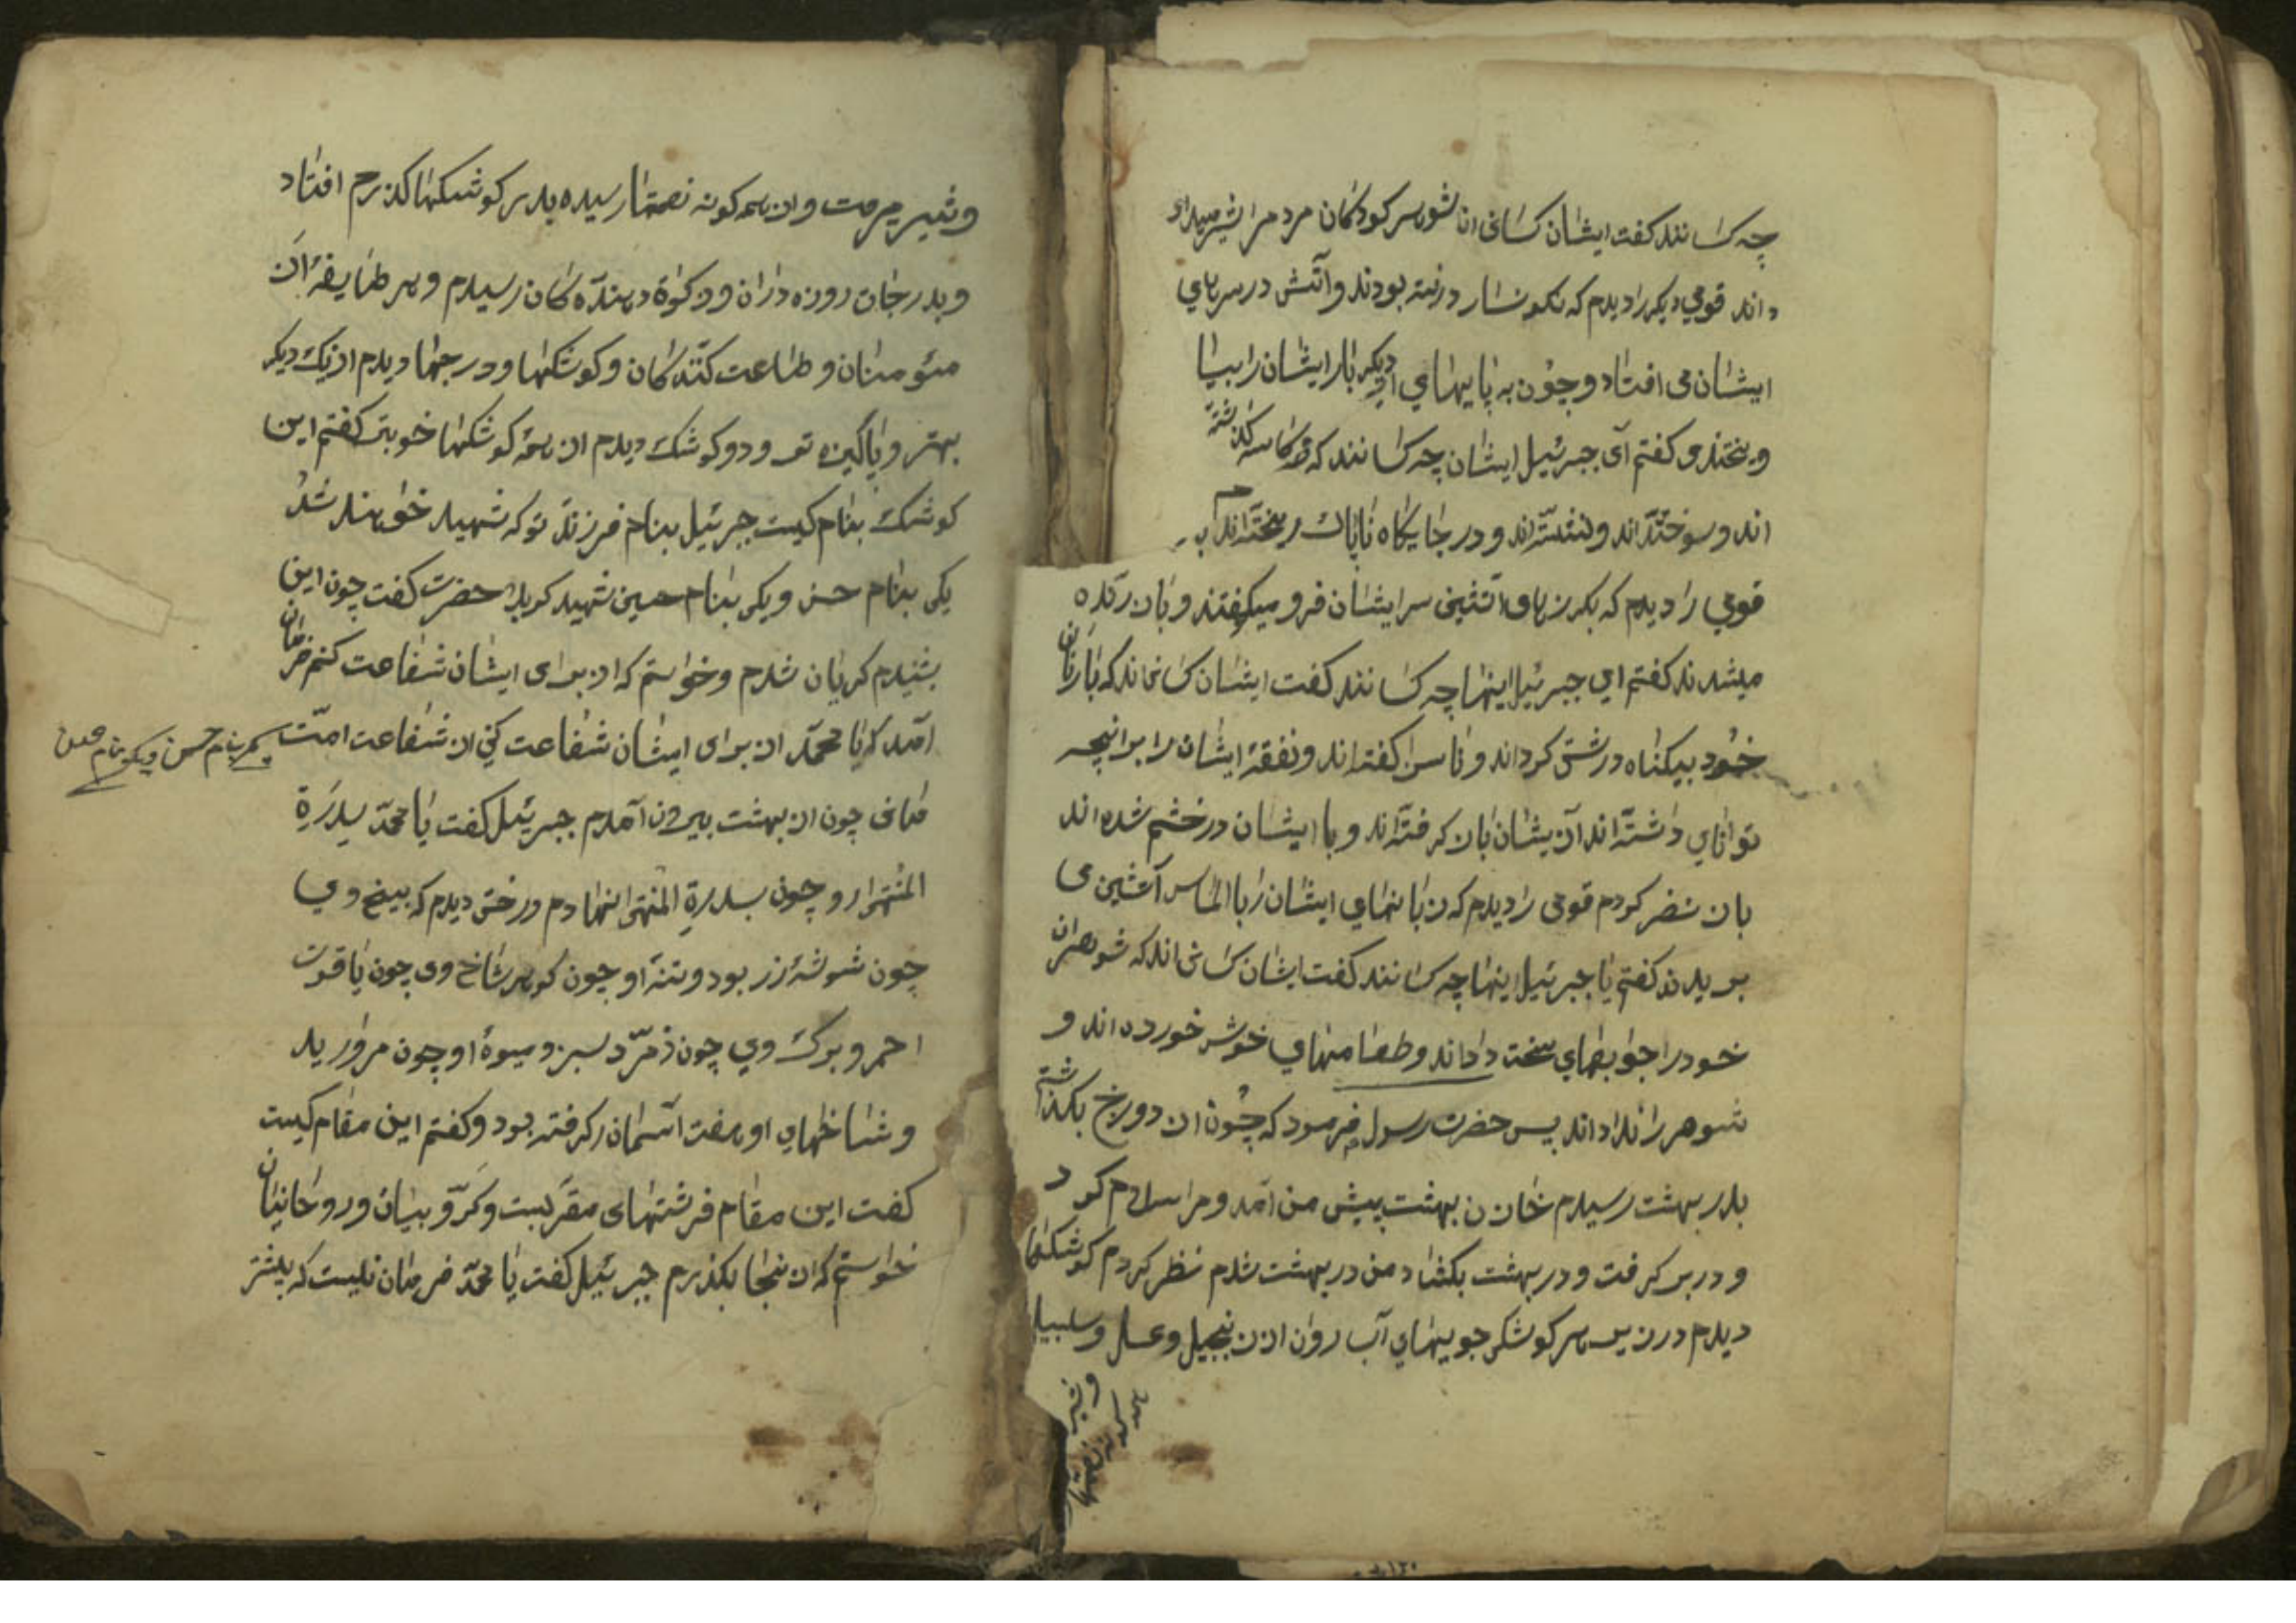 چه کسانند کفت ایشان کسانی انا شوهر کودکان مردمرا شیر میداد
داند قومی دیکر را دیدم که نکونسار درنیته بودند و آتش در سرهای
ایشان می افتاد و چون به پایهای دیکر بار ایشان را بیا
ویختند و کفتم آی جبرئیل ایشان چه کسانند که کاسه کذاشته
اند و سوخته اند و نشسته اند و در جایکاه ناپاك ریخته اند
قومی را دیدم که بکرزهای آتشین سر ایشان فرو میکوفتند و بازنده
میشدند کفتم ای جبرئیل اینها چه کسانند کفت ایشان کسانی اند که با زنان
خود بیکناه درشتی کرداند و ناسزا کفته اند و نفقهٔ ایشان را بر انچه
توانای داشته اند آزیشان باز کرفته اند و با ایشان در خشم شده اند
باز نضر کردم قومی را دیدم که زبانهای ایشان را با الماس آتشین می
بریدند کفتم یا جبرئیل اینها چه کسانند کفت ایشان کسانی اند که شوهران
خود را جوابهای سخت داداند و طعامهای خوش خورده اند و
شوهر را نداداند پس حضرت رسول فرمود که چون از دوزخ بکذاشتم
بدر بهشت رسیدم خازن بهشت پیش من آمد و مرا سلام کرد
و در بر کرفت و در بهشت بکشاد من در بهشت شدم نظر کردم کوشکها
دیدم در زیر هر کوشکی جویهای آب روان از زنجبیل و عسل و سلسبیل
و شیر میرفت و از همه کونه نعمتها رسیده بدر کوشکها کذرم افتاد
و بدرجات روزه داران و زکوٰة دهنده کان رسیدم و هر طایفهٔ از
مئومنان و طاعت کنندکان و کوشکها و درجها دیدم از یك دیکر
بهتر و پاکیزه تر و دو کوشك دیدم از همه کوشکها خوبتر کفتم این
کوشك بنام کیست جبرئیل بنام فرزند تو که شهید خواهند شد
یکی بنام حسن و یکی بنام حسین شهید کربلا حضرت کفت چون این
بشنیدم کریان شدم و خواستم که از برای ایشان شفاعت کنم فرمان
آمد که یا محمد از برای ایشان شفاعت کنی از شفاعت امّت
یکی بنام حسن و یکی بنام حسین
مانی چون از بهشت بیرون آمدم جبرئیل کفت یا محمد بسدرة
المنتهی ارو چون بسدرة المنتهی انهادم درختی دیدم که بیخ وی
چون شوشهٔ زر بود و تنهٔ او چون کوهر شاخ وی چون یاقوت
احمر و برك وی چون زمرّد سبز و میوهٔ او چون مروارید
و شاخهای او هفت آسمان را کرفته بود و کفتم این مقام کیست
کفت این مقام فرشتهای مقرّبست و کرّوبیان و روحانیان
خواستم که از ینجا بکذرم جبرئیل کفت یا محمد فرمان نیست که پیشتر